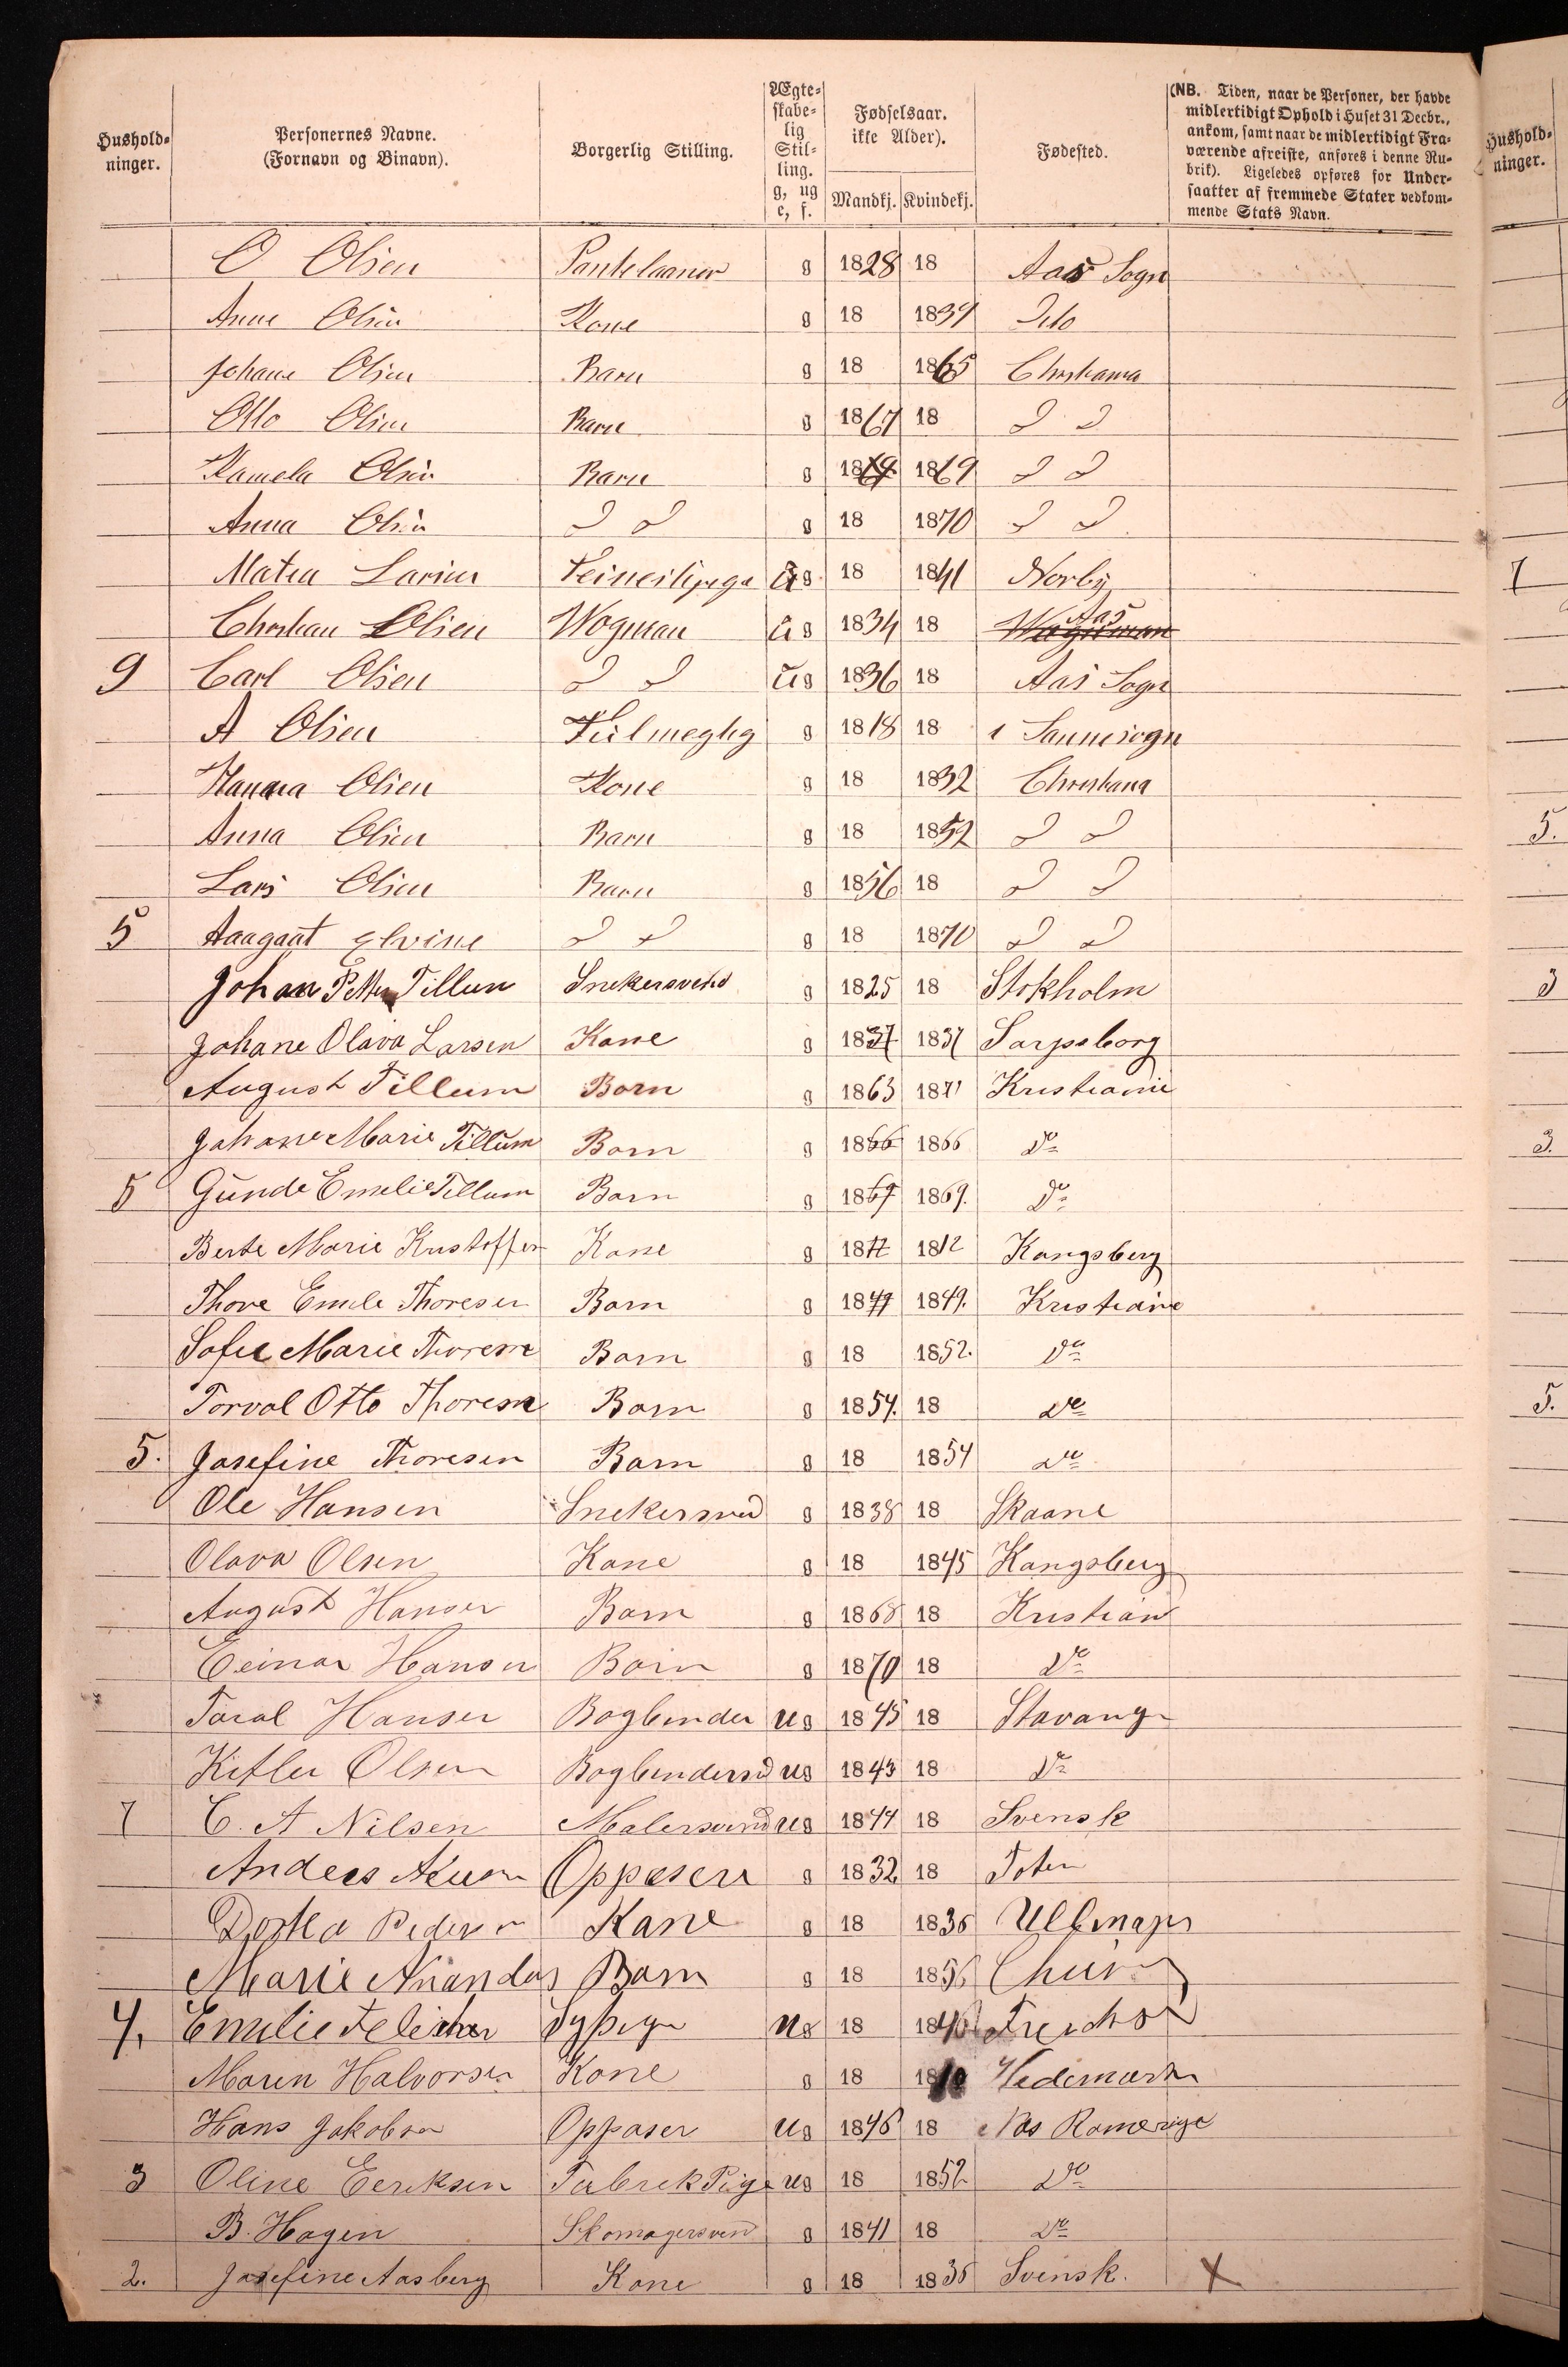 Hushold-ninger. | Personernes Navne. (Fornavn og Binavn). | Borgerlig Stilling. | Ægte-skabe-lig Stil-ling. g, ug e, f. | Fødselsaar. ikke Alder). Mandkj. Kvindekj. | Fødested. | (NB. Tiden, naar de Personer, der havde midlertidigt Ophold i Huset 31 Decbr., ankom, samt naar de midlertidigt Fra-værende afreiste, anføres i denne Ru-brik). Ligeledes opføres for Under-saatter af fremmede Stater vedkom-mende Stats Navn. | Hushold-ninger.
O Olsen Pantelaaner g 1828 18 Aas Sogn
Anne Olsen Kone g 18 1839 Dito
Johane Olsen Barn g 18 1865 Christiania
Otto Olsen Barn g 1867 18 D D
Kamela Olsen Barn g 1869 1869 D D
Anna Olsen D D g 18 1870 D D
Matea Larsen ug 18 1841 Norby 7
Christian Olsen Wogman ug 1834 18 Aas
9 Carl Olsen D D ug 1836 18 Aas Sogn
A Olsen g 1818 18
Hanna Olsen Kone g 18 1832 Christiania
Anna Olsen Barn g 18 1852 D D 5.
Lars Olsen Barn g 1856 18 D D
5 Aaagaat Elvine D D g 18 1870 D D
Johan Petter Tillun Snekersvend g 1825 18 Stokholm 3
Johane Olava Larsen Kone g 1837 1837 Sarpsborg
August Tillum Barn g 1863 18 Kristiania
Johane Marie Tillum Barn g 1866 1866 Do 3.
5 Gunde Emelie Tillum Barn g 1869 1869. Do
Berte Marie Kristoffer Kone g 18 1812 Kongsberg
Thora Emele Thoresen Barn g 1849 1849. Kristiania
Sofie Marie Thoresen Barn g 18 1852. Do
Torval Otto Thoresen Barn g 1854. 18 Do 5.
5. Josefine Thoresen Barn g 18 1854 Do
Ole Hansen Snekersvend g 1838 18 Skaane
Olava Olsen Kone g 18 1845 Kongsberg
August Hansen Barn g 1868 18 Kristian
Eeinar Hansen Barn g 1870 18 Do
Taral Hansen Bogbinder ug 1845 18 Stavanger
Kitler Olsen Bogbindersvd ug 1843 18 Do
7 C. A Nilsen Malersvend ug 1844 18 Svensk
Anders Oppaser g 1832 18 Toten
Dortea Pedersen Kone g 18 1836
Marie Barn g 18 1856
4, Emilie Sypige ug 18 1846
Maren Halvorsen Kone g 18 18 Hedemarken
Hans Jakobsen Oppaser ug 1846 18 Næs Romerige
3 Oline Eeriksen Fabrek Pige ug 18 1852 Do
B. Hagen Skomagersvend g 1841 18 Do
2. Josefine Aasberg Kone g 18 1836 Svensk. X